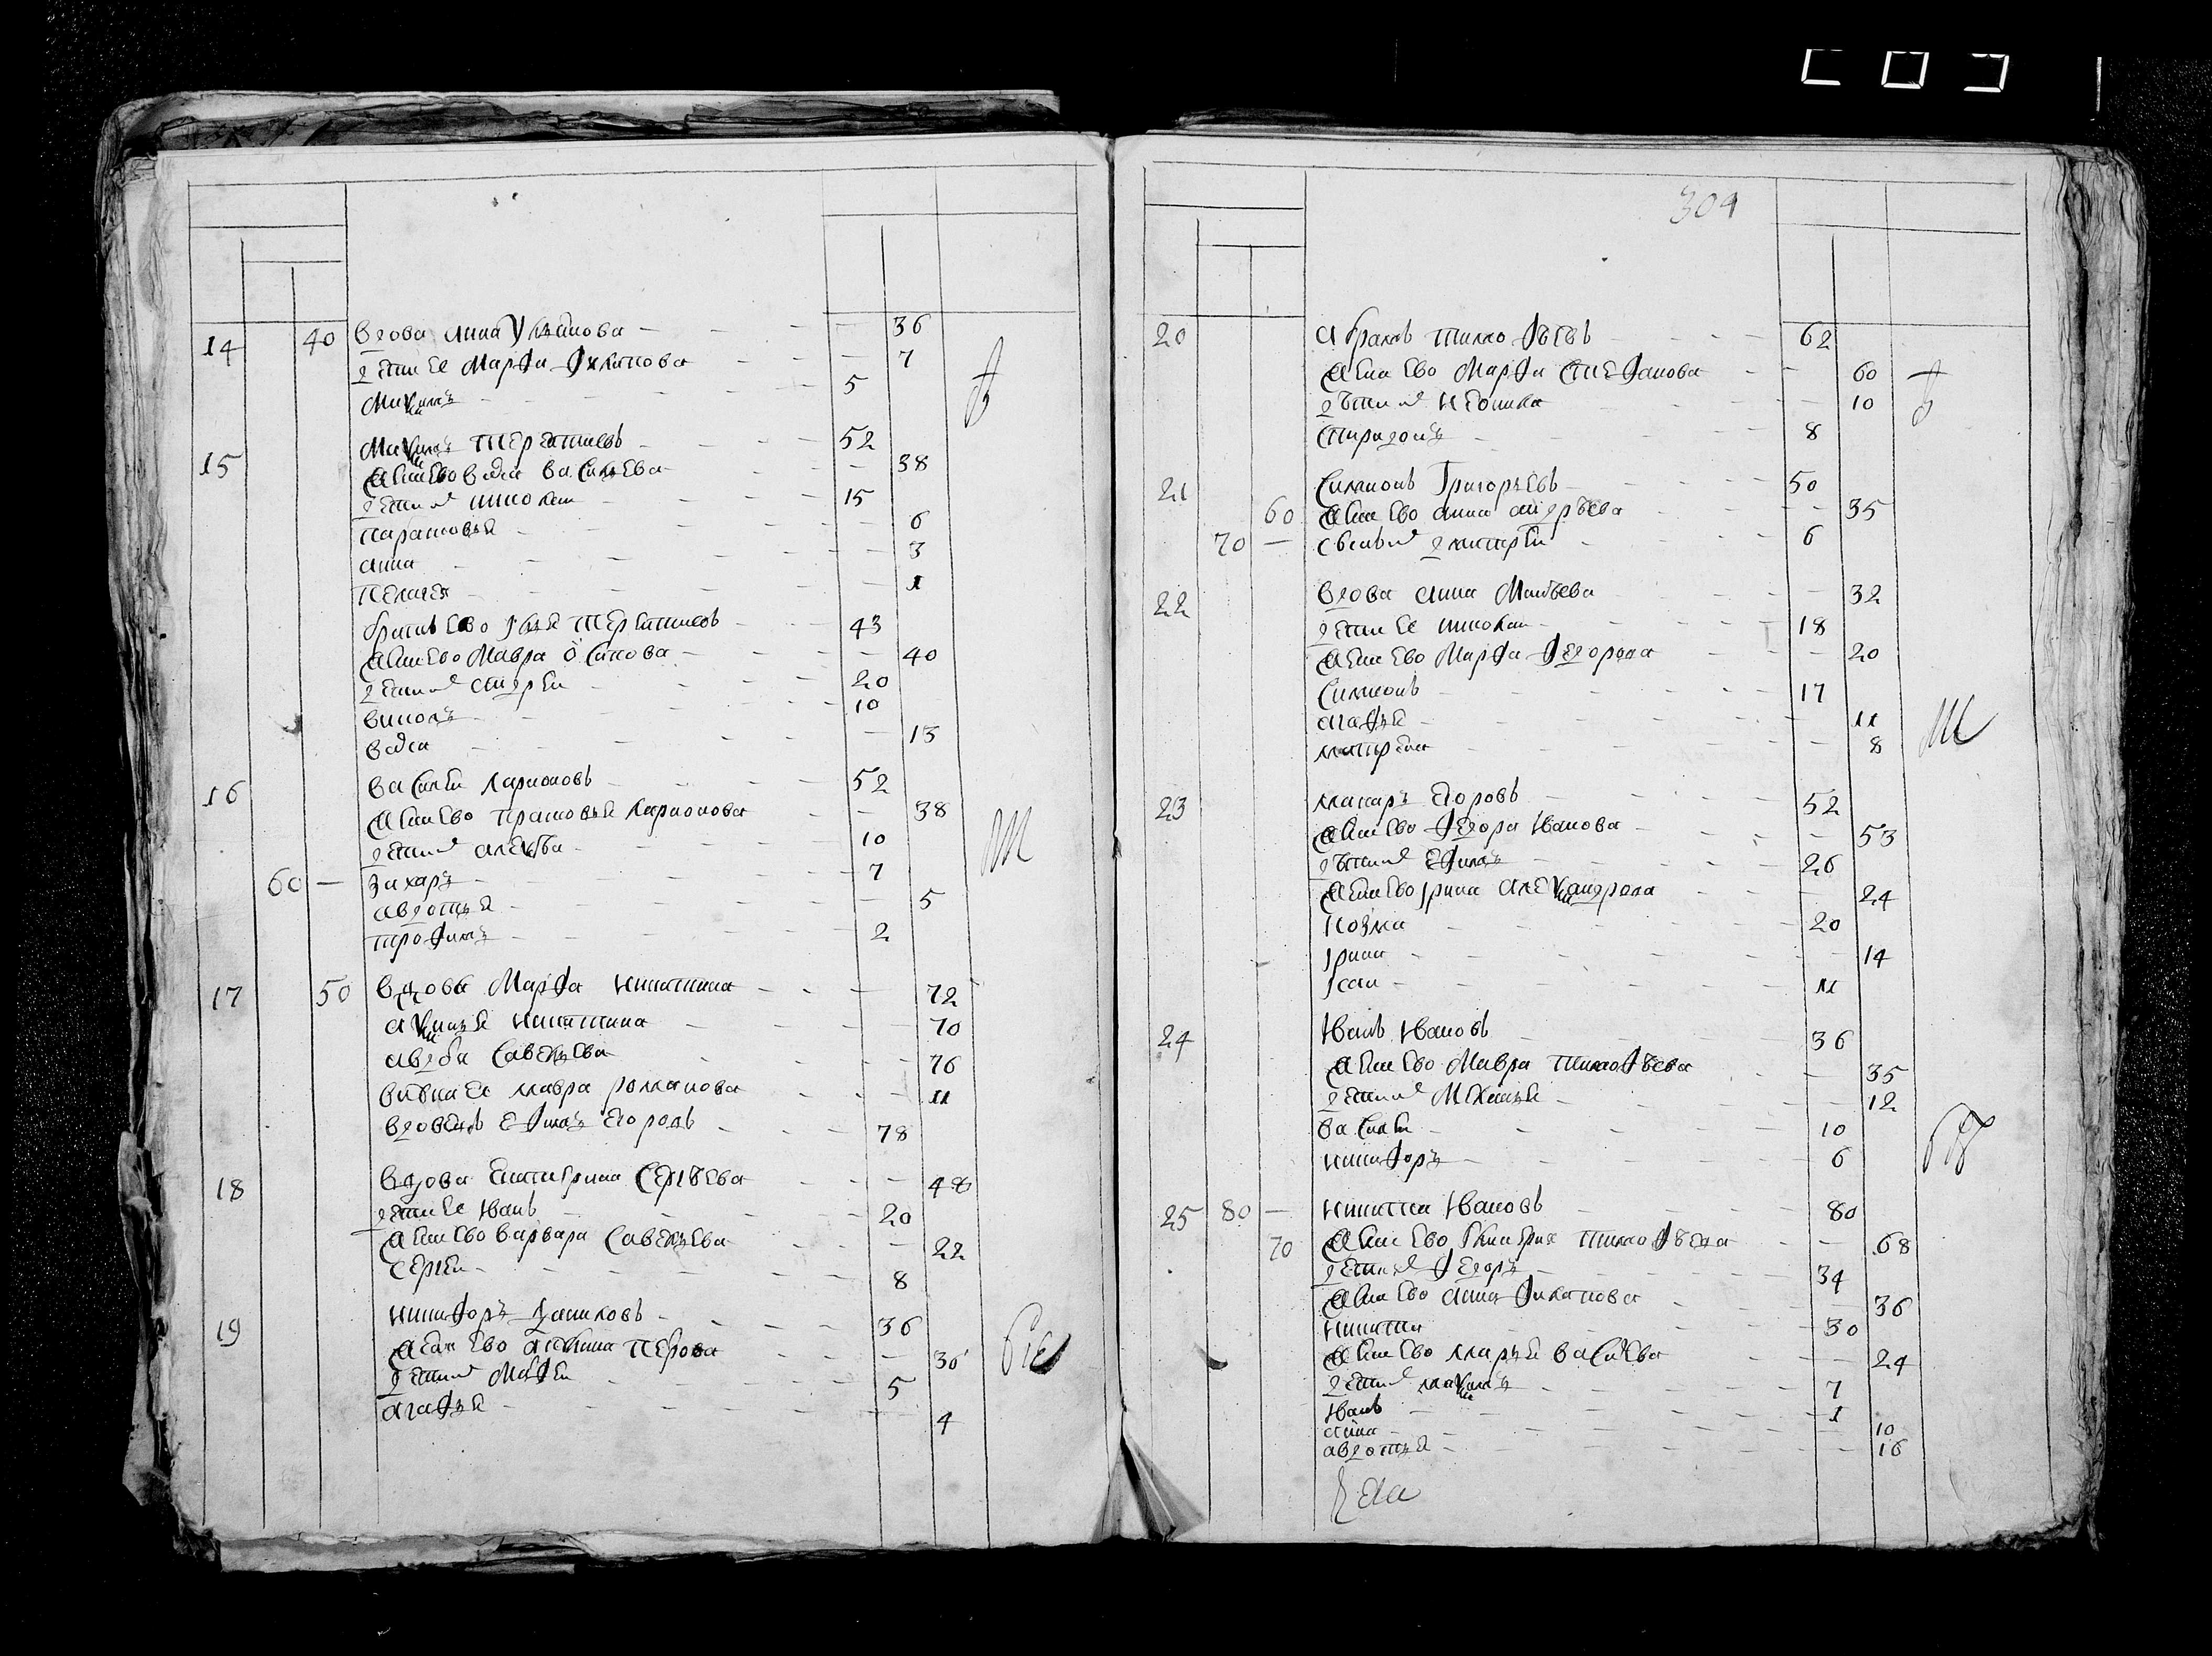 14 40 вдова анна Ульянова 36
дети ее Марфа Филипова 7
Михаилъ 5
15 Михаилъ Терентиевъ 52
жена ево васса васильева 38
дети их николаи 15
парасковья 6
анна 3
пелагея 1
братъ ево Илья Терентиевъ 43
жена ево Мавра Осипова 40
дети их андреи 20
виколъ 10
васса 13
16 василеи ларионовъ 52
жена ево прасковья ларионова 38
дети их алексеи 10
60 захаръ 7
авдотья 5
трофимъ 2
17 50 вдова Марфа никитина 72
аксинья никитина 70
савельева 76
внука ее мавра романова 11
вдовецъ ефимъ егоровъ 78
18 вдова Екатерина Сергѣева 48
дети ее Иванъ 20
жена ево варвара савельева 22
сергеи 8
19 никифоръ даниловъ 36
жена ево петрова 30
дети их Матфеи 5
агафья 4
304
20 абрамъ тимофѣевъ 62
жена ево Марфа стефанова 60
дѣти их 10
спиридонъ 8
21 симионъ Григорьевъ 50
60 жена ево анна андрѣева 35
70 дмитреи 6
22 вдова анна Матвѣева 32
дети ее николаи 18
жена ево Марфа федорова 20
симионъ 17
агафья 11
матрена 8
23 макаръ егоровъ 52
жена ево федора Иванова 53
дѣти их ефимъ 26
жена ево ирина александрова 24
козма 20
ирина 14
исаи 11
24 Иванъ Ивановъ 36
жена ево Мавра тимофѣева 35
дети их 12
василеи 10
никифоръ 6
25 80 никита Ивановъ 80
70 жена ево тимофѣева 68
дети их федоръ 34
жена ево анна филипова 36
никита 30
жена ево марья васильева 24
дети их михаилъ 7
Иванъ 1
анна 10
авдотья 16